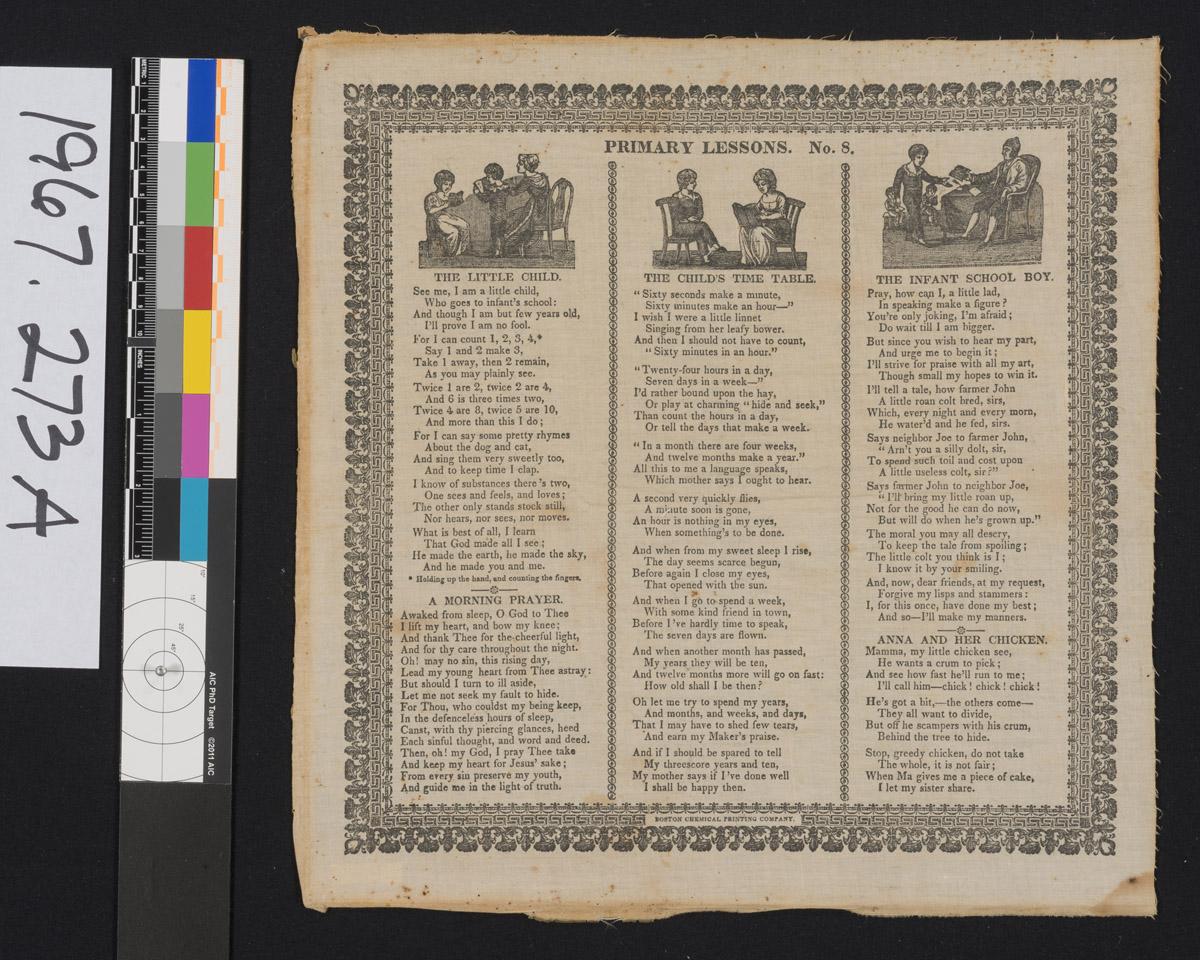 1967.273A
PRIMARY LESSONS. No. 8.
THE LITTLE CHILD.
See me, I am a little child,
Who goes to infant's school:
And though I am but few years old,
I'll prove I am no fool.
For I can count 1, 2, 3, 4,*
Say 1 and 2 make 3,
Take 1 away, then 2 remain,
As you may plainly see.
Twice 1 are 2, twice 2 are 4,
And 6 is three times two,
Twice 4 are 8, twice 5 are 10,
And more than this I do;
For I can say some pretty rhymes
About the dog and cat,
And sing them very sweetly too,
And to keep time I clap.
I know of substances there's two,
One sees and feels, and loves;
The other only stands stock still,
Nor hears, nor sees, nor moves.
What is best of all, I learn
That God made all I see;
He made the earth, he made the sky,
And he made you and me.
* Holding up the hand, and counting the fingers.
A MORNING PRAYER.
Awaked from sleep, O God to Thee
I lift my heart, and bow my knee;
And thank Thee for the cheerful light,
And for thy care throughout the night.
Oh! may no sin, this rising day,
Lead my young heart from Thee astray:
But should I turn to ill aside,
Let me not seek my fault to hide.
For Thou, who couldst my being keep,
In the defenceless hours of sleep,
Canst, with thy piercing glances, heed
Each sinful thought, and word and deed.
Then, oh! my God, I pray Thee take
And keep my heart for Jesus' sake;
From every sin preserve my youth,
And guide me in the light of truth.
THE CHILD'S TIME TABLE.
"Sixty seconds make a minute,
Sixty minutes make an hour—"
I wish I were a little linnet
Singing from her leafy bower.
And then I should not have to count,
"Sixty minutes in an hour."
"Twenty-four hours in a day,
Seven days in a week—"
I'd rather bound upon the hay,
Or play at charming "hide and seek,"
Than count the hours in a day,
Or tell the days that make a week.
"In a month there are four weeks,
And twelve months make a year."
All this to me a language speaks,
Which mother says I ought to hear.
A second very quickly flies,
A minute soon is gone,
An hour is nothing in my eyes,
When something's to be done.
And when from my sweet sleep I rise,
The day seems scarce begun,
Before again I close my eyes,
That opened with the sun.
And when I go to spend a week,
With some kind friend in town,
Before I've hardly time to speak,
The seven days are flown.
And when another month has passed,
My years they will be ten,
And twelve months more will go on fast:
How old shall I be then?
Oh let me try to spend my years,
And months, and weeks, and days,
That I may have to shed few tears,
And earn my Maker's praise.
And if I should be spared to tell
My threescore years and ten,
My mother says if I've done well
I shall be happy then.
THE INFANT SCHOOL BOY.
Pray, how can I, a little lad,
In speaking make a figure?
You're only joking, I'm afraid;
Do wait till I am bigger.
But since you wish to hear my part,
And urge me to begin it;
I'll strive for praise with all my art,
Though small my hopes to win it.
I'll tell a tale, how farmer John
A little roan colt bred, sirs,
Which, every night and every morn,
He water'd and he fed, sirs.
Says neighbor Joe to farmer John,
"Arn't you a silly dolt, sir,
To spend such toil and cost upon
A little useless colt, sir?"
Says farmer John to neighbor Joe,
"I'll bring my little roan up,
Not for the good he can do now,
But will do when he's grown up."
The moral you may all descry,
To keep the tale from spoiling;
The little colt you think is I;
I know it by your smiling.
And, now, dear friends, at my request,
Forgive my lisps and stammers:
I, for this once, have done my best;
And so—I'll make my manners.
ANNA AND HER CHICKEN.
Mamma, my little chicken see,
He wants a crum to pick;
And see how fast he'll run to me;
I'll call him—chick! chick! chick!
He's got a bit,—the others come—
They all want to divide,
But off he scampers with his crum,
Behind the tree to hide.
Stop, greedy chicken, do not take
The whole, it is not fair;
When Ma gives me a piece of cake,
I let my sister share.
BOSTON CHEMICAL PRINTING COMPANY.
METRIC
INCHES
AIC PhD Target ©2011 AIC